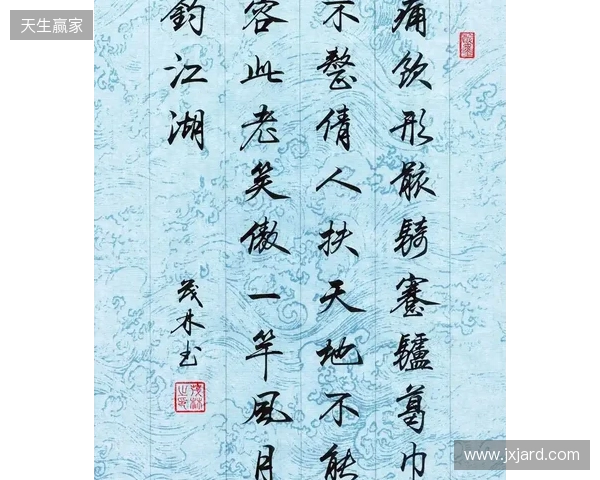 天生赢家
痛飲形骸騎蹇驢葛巾
不整倩人扶天地不能
容此老笑傲一竿風月
釣江湖
茂林书
www.jxjard.com